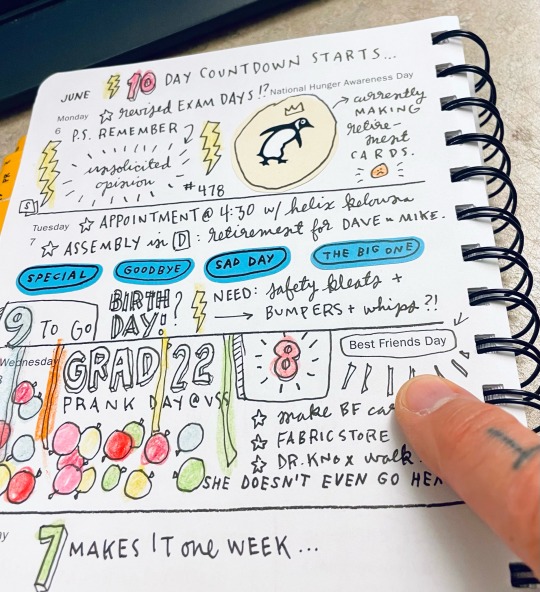 10 DAY COUNTDOWN STARTS...
JUNE
Monday
6
☆ revised EXAM DAYS!?
National Hunger Awareness Day
P.S. REMEMBER
unsolicited
opinion
#478
→ currently
MAKING
retire-
ment
CARDS.
$
Tuesday
7
☆ APPOINTMENT @ 4:30 w/ helix kelowna
☆ ASSEMBLY in D : retirement for DAVE ~ MIKE.
SPECIAL
GOODBYE
SAD DAY
THE BIG ONE
9 TO GO
BIRTH
DAY!?
NEED: safety kleats +
→ BUMPERS + whips?!
Wednesday
GRAD 22
PRANK DAY @ VSS
8
Best Friends Day
☆ make BF
☆ FABRIC STORE
☆ DR. KNOX walk
SHE DOESN'T EVEN GO
7 MAKES IT one WEEK...